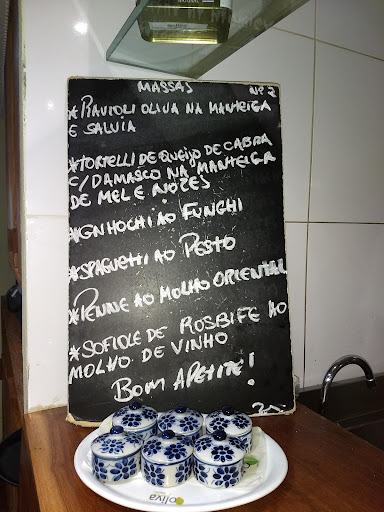 MASSAS Nº 2
*RAVIOLI OLIVA NA MANTEIGA
E SALVIA
*TORTELLI DE QUEIJO DE CABRA
C/ DAMASCO NA MANTEIGA
DE MEL E NOZES
*GNHOCHI AO FUNGHI
*SPAGHETTI AO PESTO
*PENNE AO MOLHO ORIENTAL
*SOFIOLE DE ROSBIFE AO
MOLHO DE VINHO
BOM APETITE!
oliva